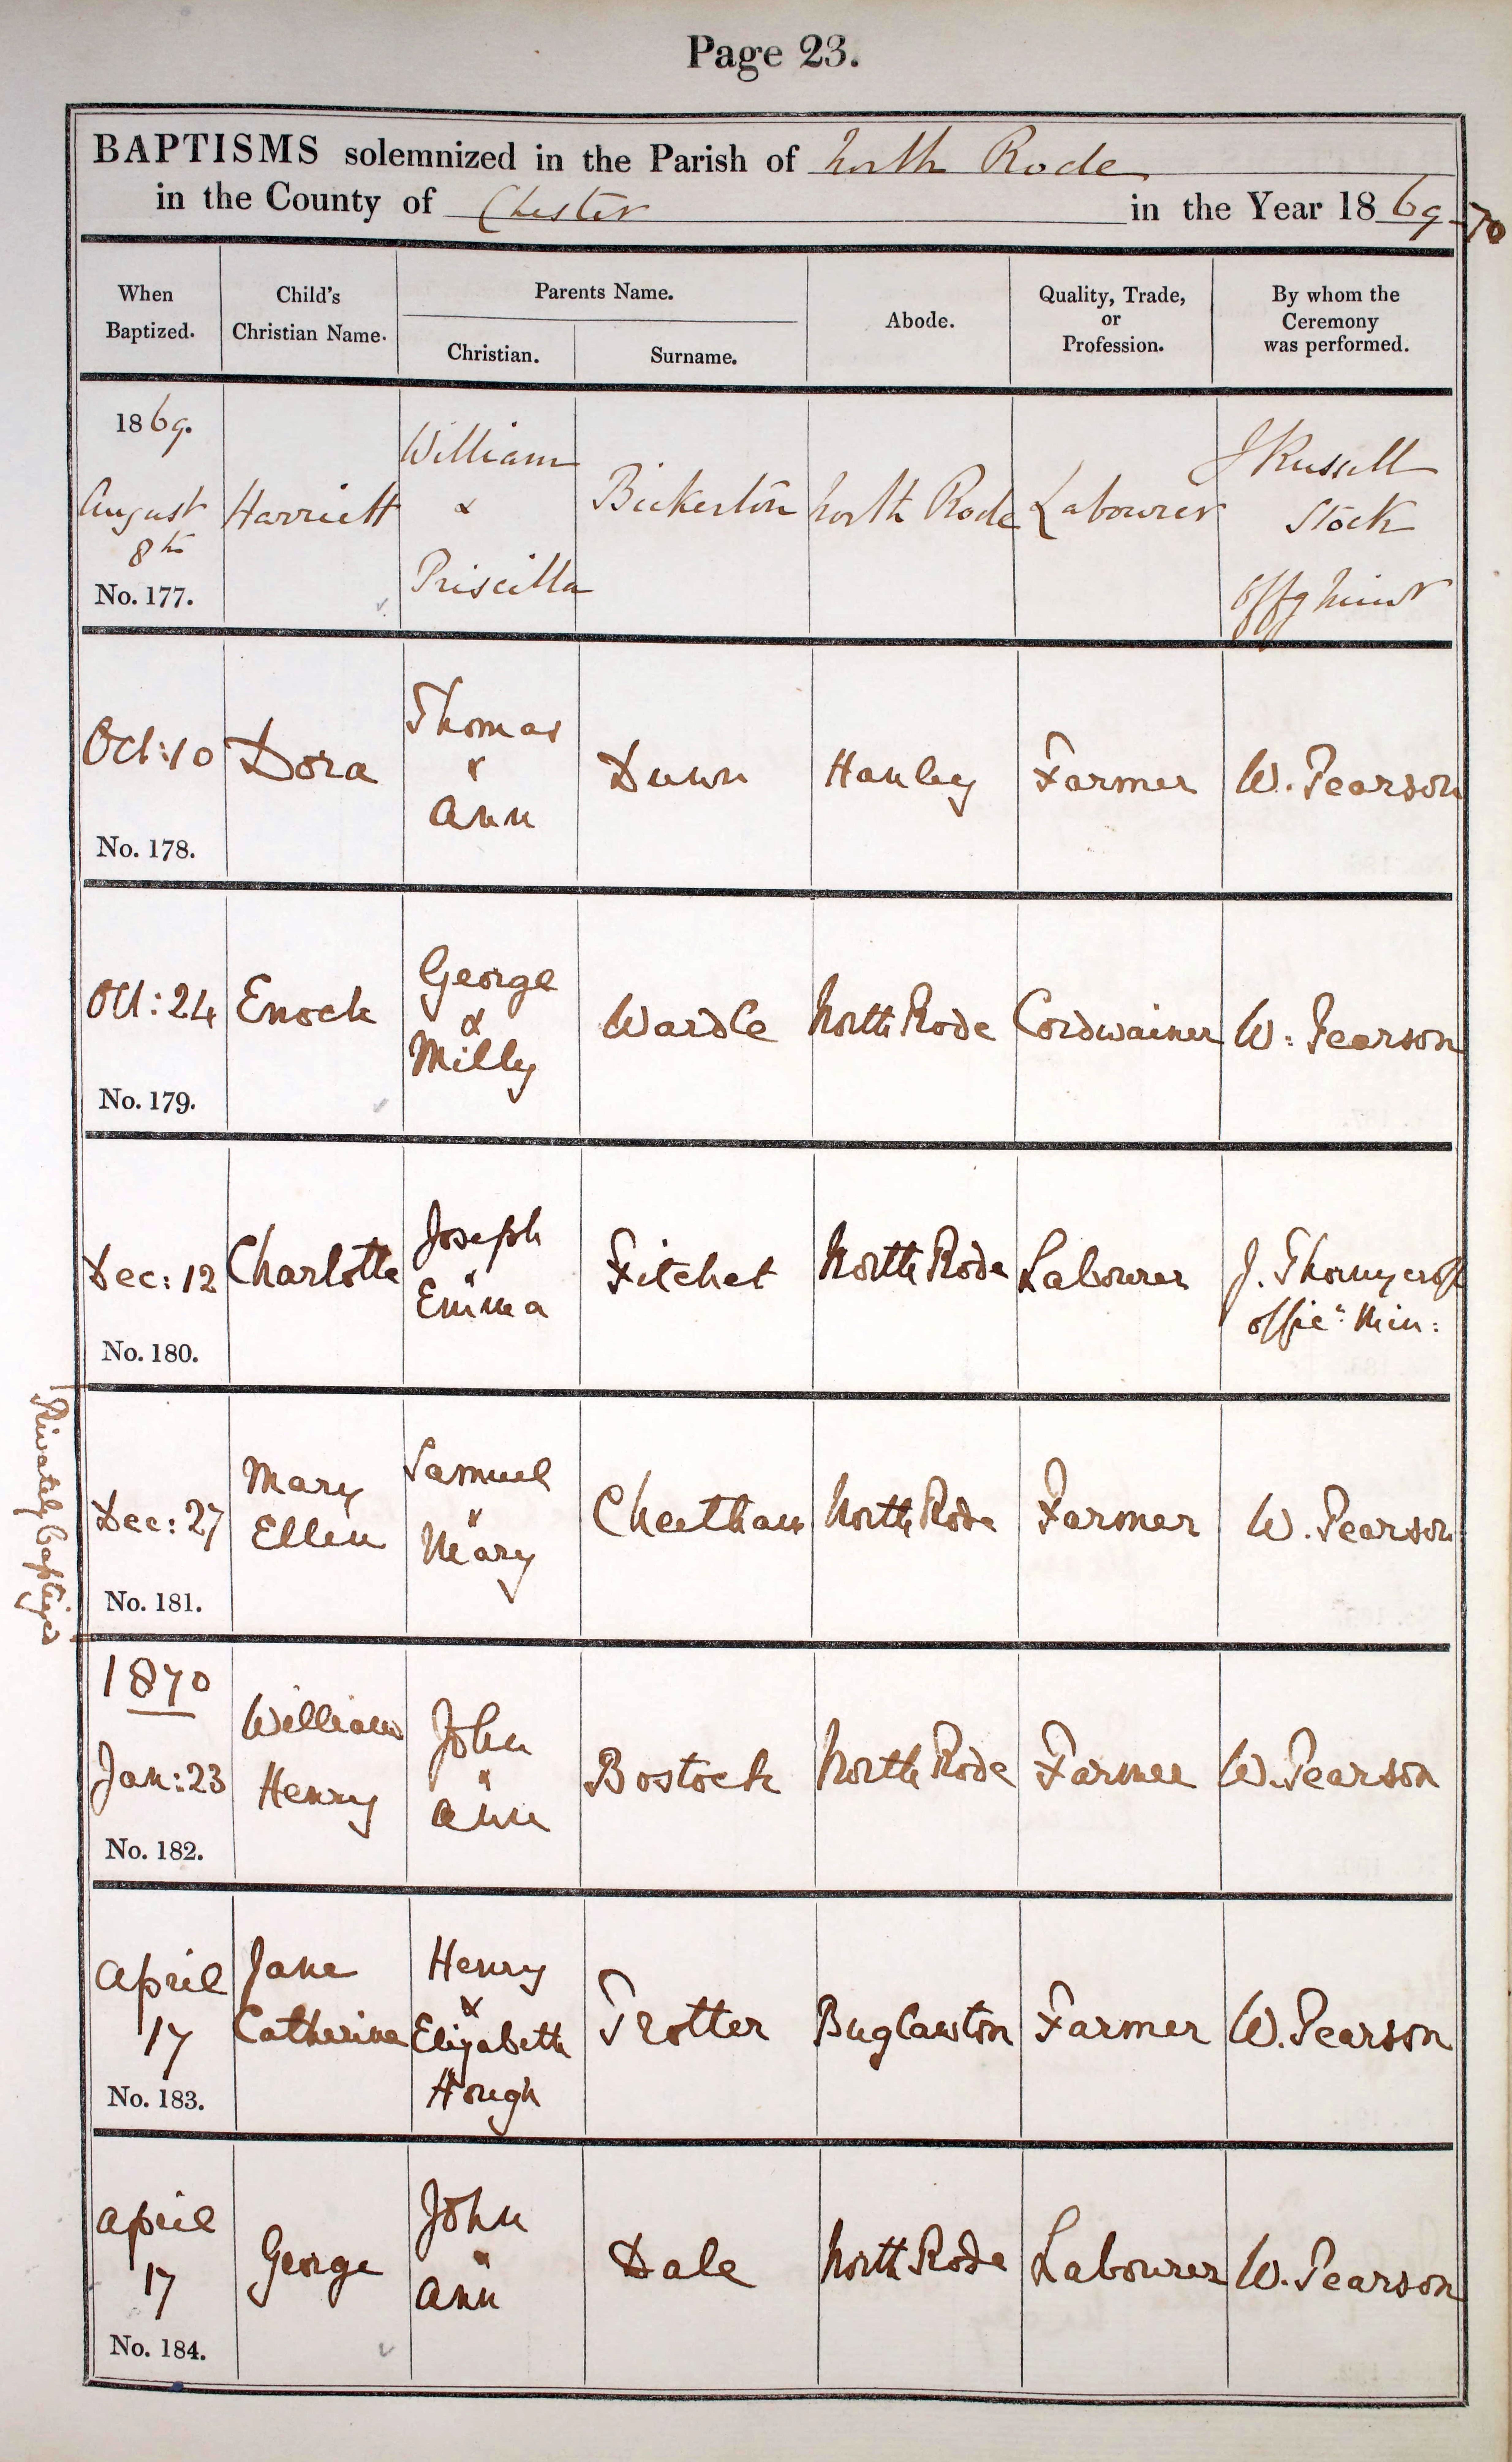 Page 23.
BAPTISMS solemnized in the Parish of North Rode
in the County of Chester in the Year 1869-70
When Baptized.
Child's Christian Name.
Parents Name.
Christian.
Surname.
Abode.
Quality, Trade, or Profession.
By whom the Ceremony was performed.
1869.
August
8th
No. 177.
Harriett
William
&
Priscilla
Bickerton
North Rode
Labourer
J Russell
Stock
Offg Minr
Oct: 10
No. 178.
Dora
Thomas
&
Ann
Dunn
Hanley
Farmer
W. Pearson
Oct: 24
No. 179.
Enoch
George
&
Milly
Wardle
North Rode
Cordwainer
W: Pearson
Dec: 12
No. 180.
Charlotte
Joseph
"
Emma
Fitchet
North Rode
Labourer
J. Thornycroft
offic: Min:
Privately baptized
Dec: 27
No. 181.
Mary
Ellen
Samuel
"
Mary
Cheetham
North Rode
Farmer
W. Pearson
1870
Jan: 23
No. 182.
William
Henry
John
"
Ann
Bostock
North Rode
Farmer
W. Pearson
April
17
No. 183.
Jane
Catherine
Henry
&
Elizabeth
Hough
Trotter
Buglawton
Farmer
W. Pearson
April
17
No. 184.
George
John
"
Ann
Dale
North Rode
Labourer
W. Pearson